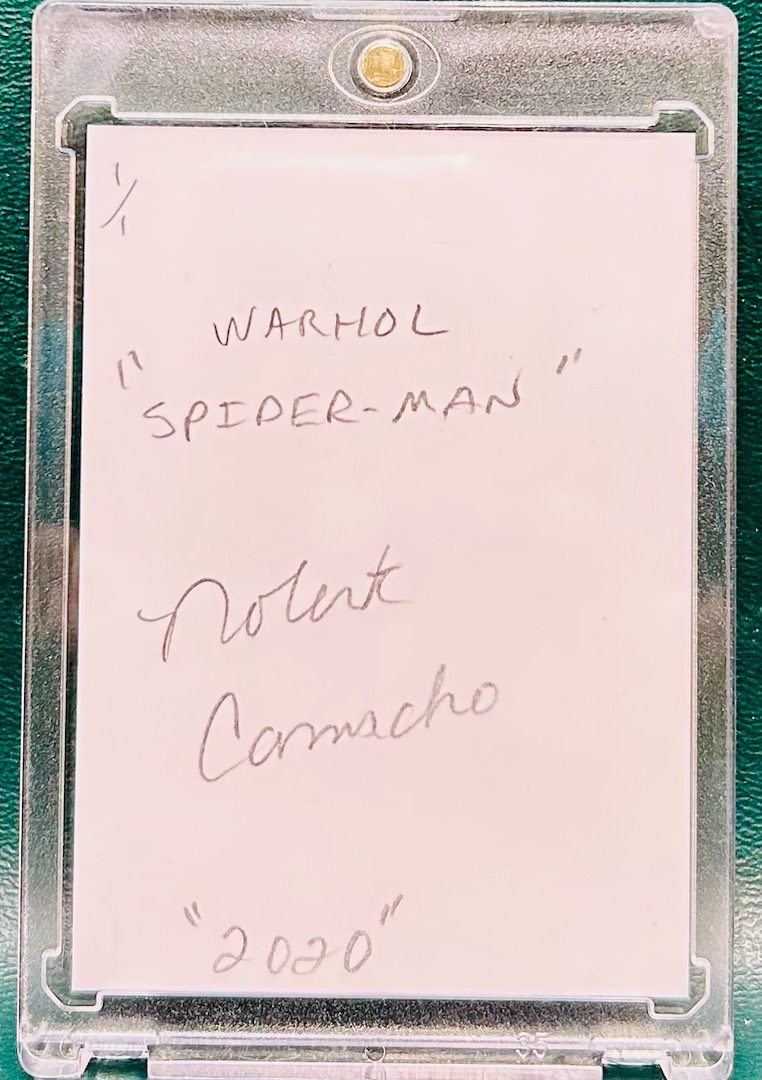 1/1
WARHOL
"SPIDER-MAN"
Nolert
Camacho
"2020"
35